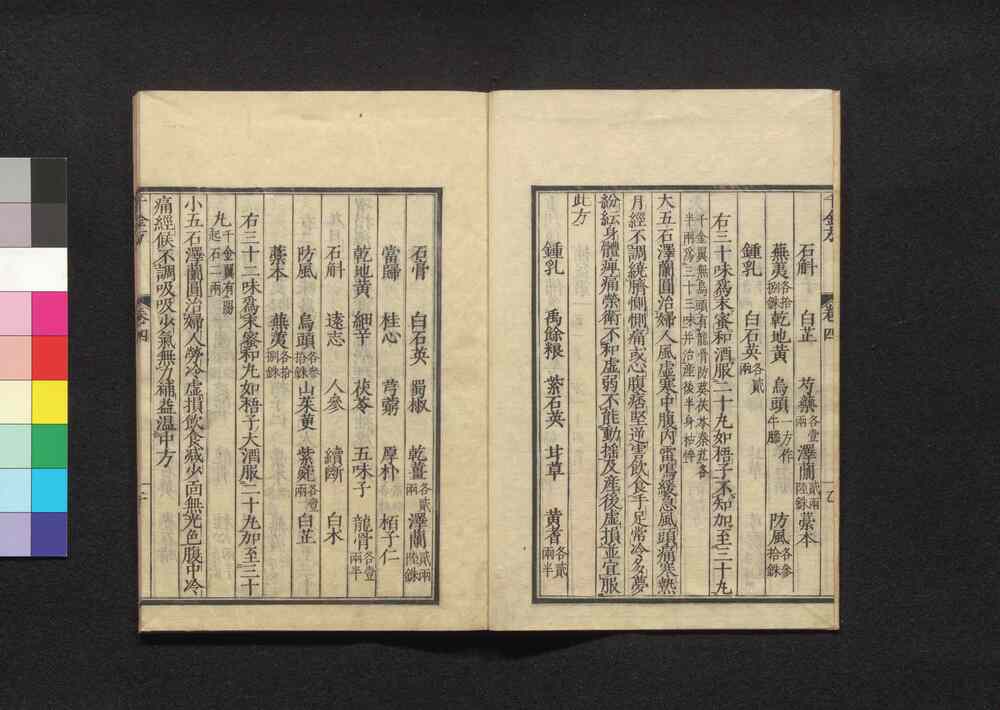 千金方 卷四
石斛 白芷 芍藥各壹兩 澤蘭貳兩陸銖 藁本
蕪荑各拾捌銖 乾地黃 烏頭一方作牛膝 防風各參拾銖
鍾乳 白石英各貳兩
右三十味爲末蜜和酒服二十丸如梧子不知加至三十丸
千金翼無烏頭有龍骨防葵茯苓秦艽各
半兩爲三十三味并治產後半身枯悴
大五石澤蘭圓治婦人風虛寒中腹內雷鳴緩急風頭痛寒熱
月經不調繞臍惻惻痛或心腹痞堅逆害飲食手足常冷多夢
紛紜身體痺痛榮衛不和虛弱不能動搖及產後虛損並宜服
此方
鍾乳 禹餘粮 紫石英 甘草 黃耆各貳兩半
石膏 白石英 蜀椒 乾薑各貳兩 澤蘭貳兩陸銖
當歸 桂心 芎藭 厚朴 栢子仁
乾地黃 細辛 茯苓 五味子 龍骨各壹兩半
石斛 遠志 人參 續斷 白朮
防風 烏頭各參拾銖 山茱萸 紫菀各壹兩 白芷
藁本 蕪荑各拾捌銖
右三十二味爲末蜜和丸如梧子大酒服二十丸加至三十
丸千金翼有陽起石二兩
小五石澤蘭圓治婦人勞冷虛損飲食減少面無光色腹中冷
痛經候不調吸吸少氣無力補益溫中方
千金方 卷四